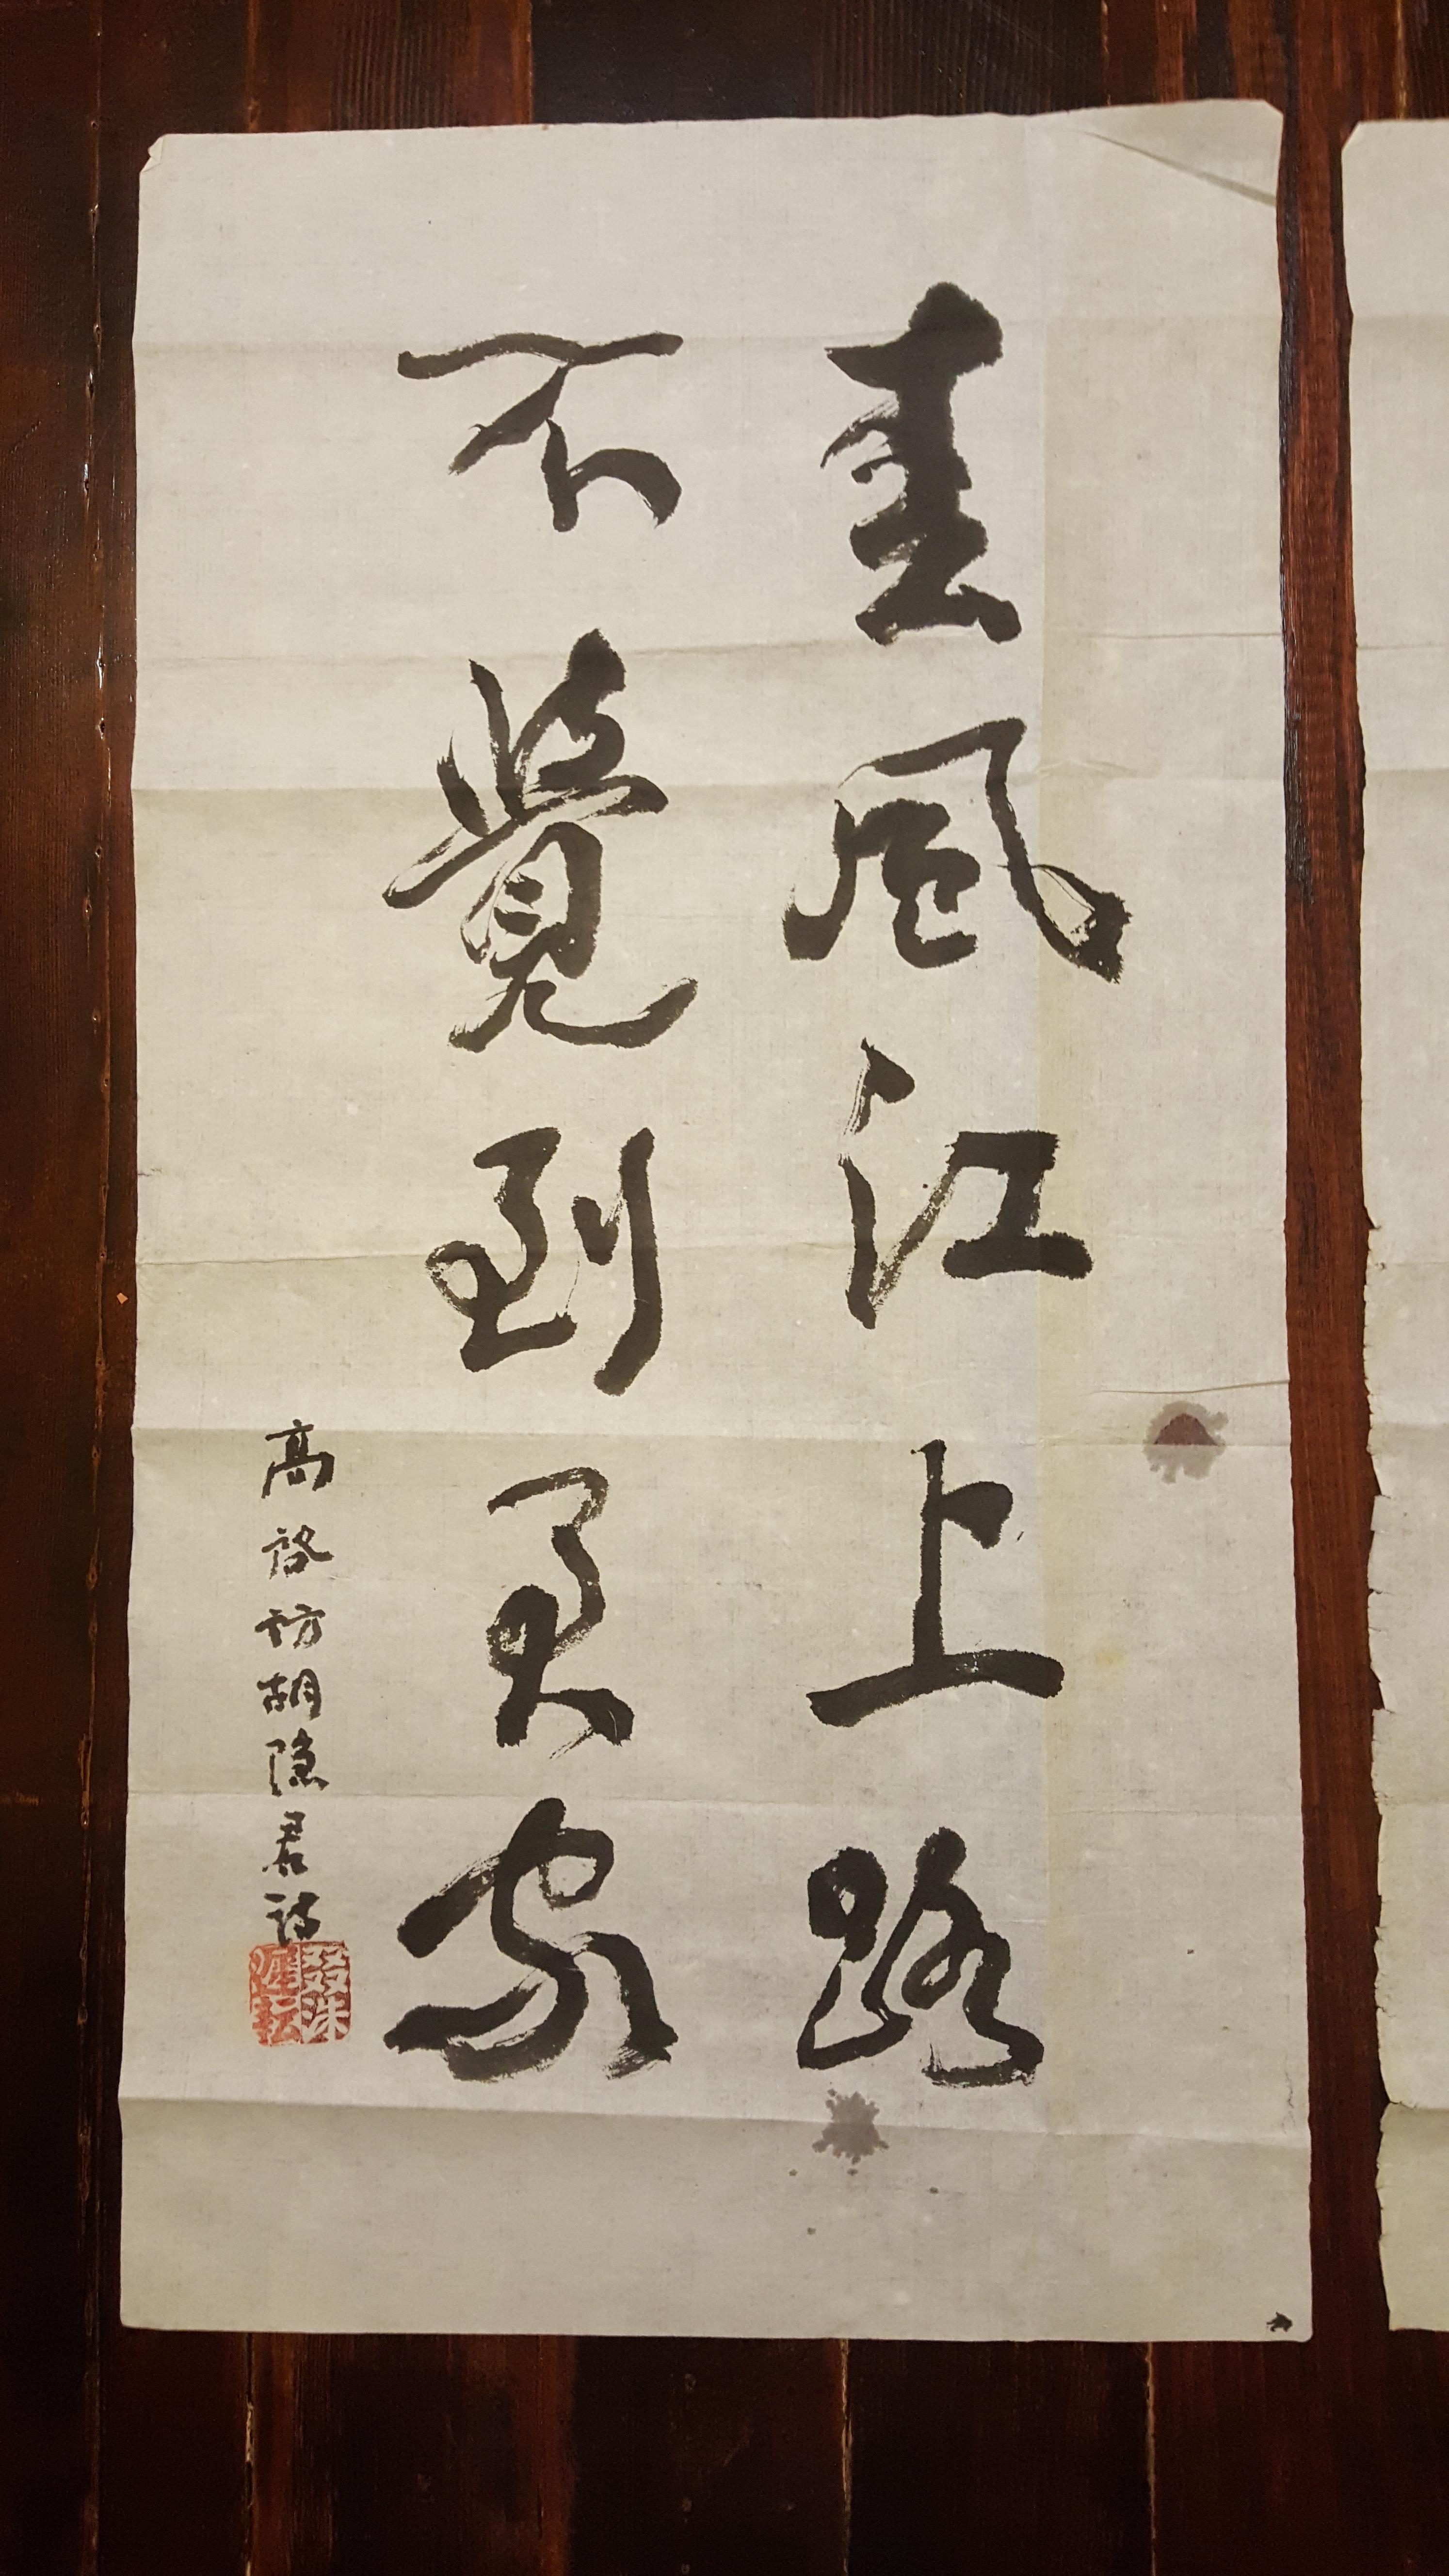 春風江上路
不覺到君家
高啓訪胡隱君詩